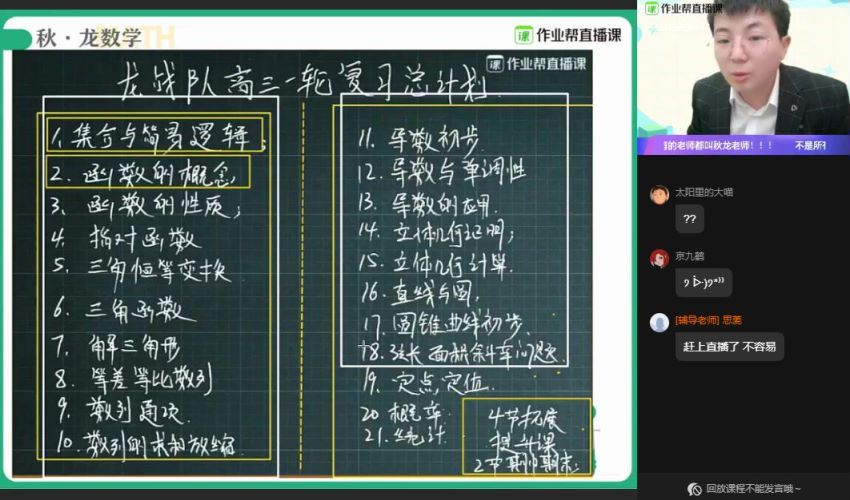 秋·龙数学
作业帮直播课
作业帮直播课
龙战队高三一轮复习总计划
1. 集合与简易逻辑;
2. 函数的概念;
3. 函数的性质;
4. 指对函数
5. 三角恒等变换
6. 三角函数
7. 解三角形
8. 等差等比数列
9. 数列通项
10. 数列的求和放缩
11. 导数初步
12. 导数与单调性
13. 导数的应用
14. 立体几何证明;
15. 立体几何计算
16. 直线与圆,
17. 圆锥曲线初步
18. 弦长 面积 斜率问题
19. 定点,定值
20 概率
21. 统计
4节拓展
提升课
2节期中期末;
作业帮直播课
的老师都叫秋龙老师！！！ 不是所有
太阳里的大喵
??
京九鹤
[辅导老师] 思萎
赶上直播了 不容易
回放课程不能发言噢~